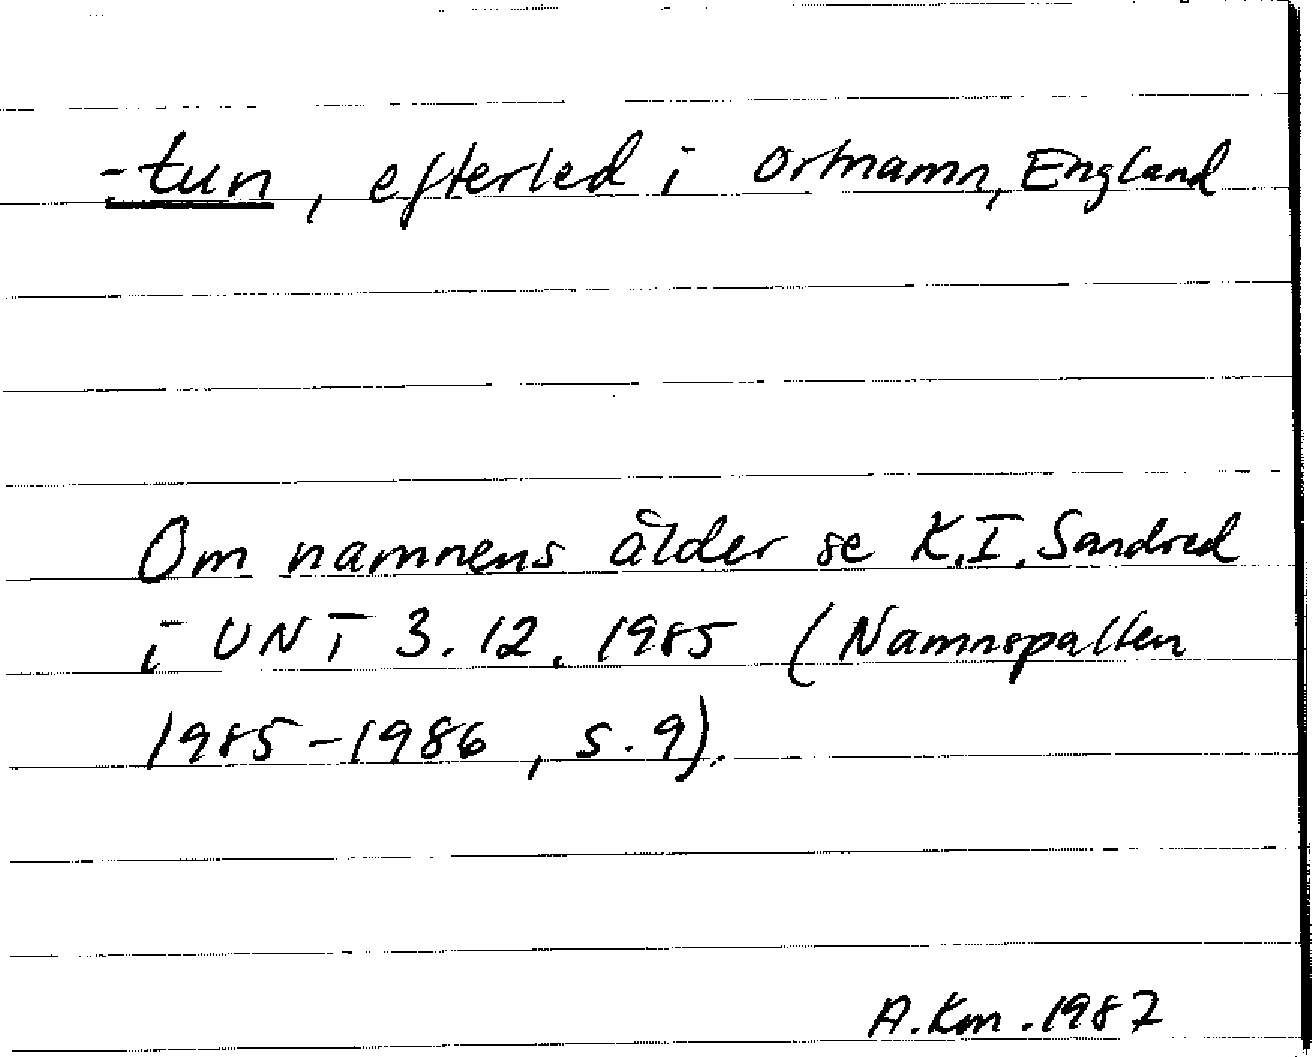 -tun, efterled i ortnamn, England
Om namnens ålder se K.I. Sandred
i UNT 3.12.1985 (Namnspalten
1985-1986, s.9).
A.Km.1987